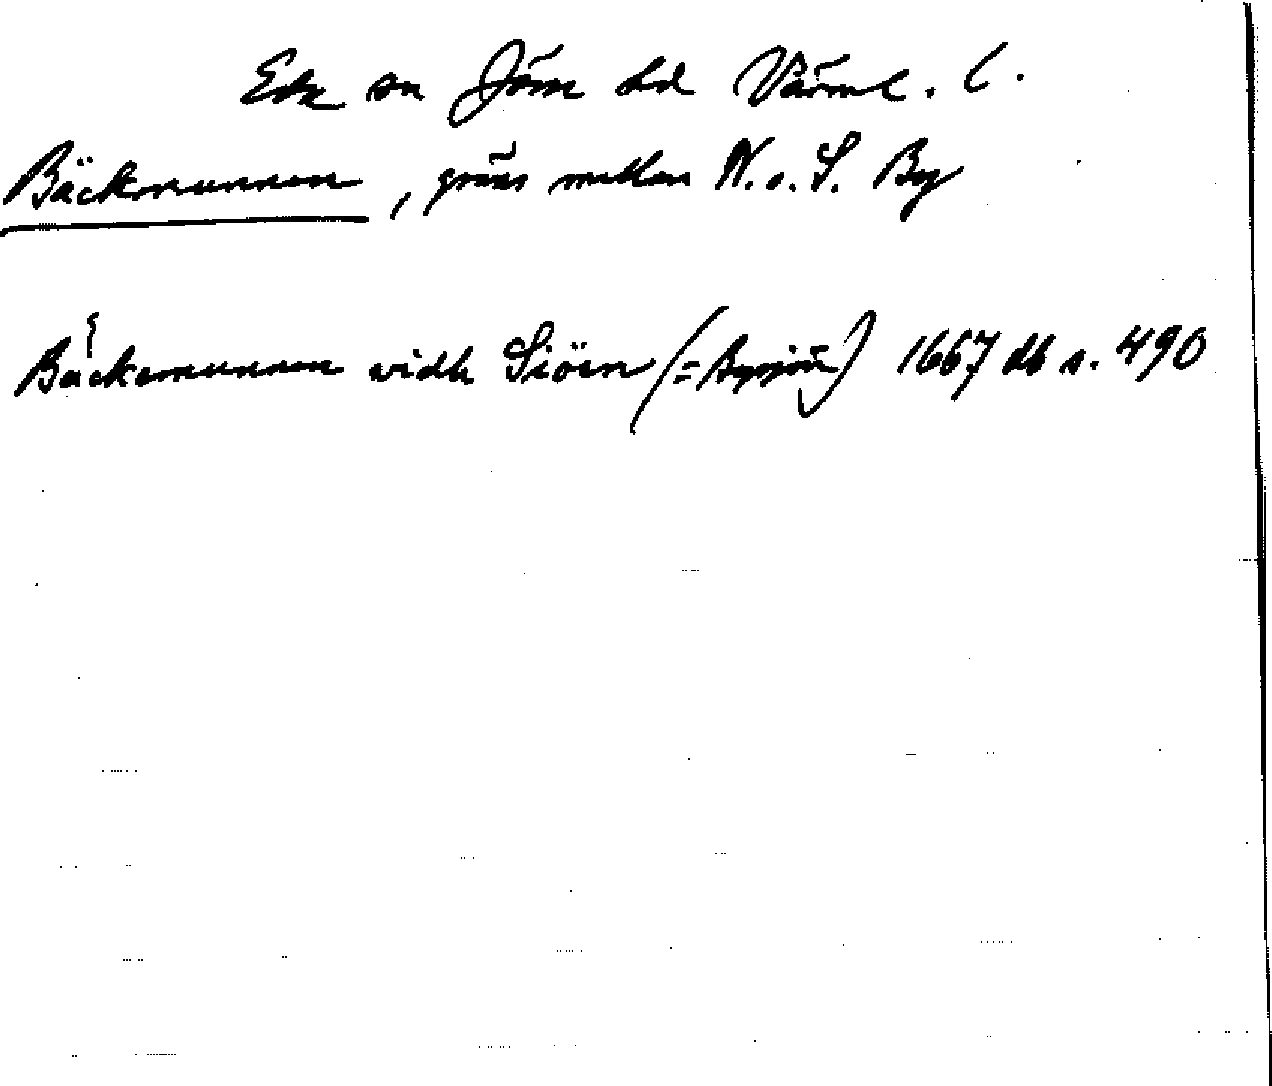 Eda sn Jösse hd Värml. l.
Bäckmunnen, gräns mellan N. o. S. By
Backemunnen widh Siöen (= Bysjön) 1667 db s. 490